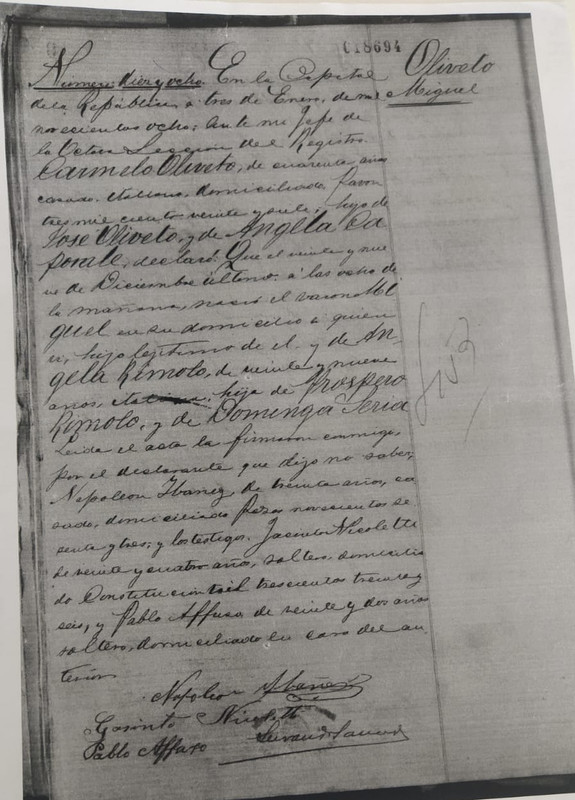 018694
Oliveto
Miguel
Número diez y ocho. En la Capital
de la República, a tres de Enero, de mil
novecientos ocho: ante mi Jefe de
la Octava Sección del Registro.
Carmelo Oliveto, de cuarenta años
casado, italiano, domiciliado
tres mil ciento veinte y siete, hijo de
José Oliveto, y de Angela Ca
porale, declaró: Que el veinte y nue
ve de Diciembre último: a las ocho de
la mañana, nació el varon Mi
guel en su domicilio a quien
vi, hijo legítimo de él y de An-
gela Rimolo, de veinte y nueve
años, italiana, hija de Prospero
Rimolo, y de Dominga Seria
Leida el acta la firmaron conmigo,
por el declarante que dijo no saber,
Napoleon Ibañez, de treinta años, ca
sado, domiciliado Pozos novecientos se
senta y tres; y los testigos, Jacinto Nicoletti
de veinte y cuatro años, soltero, domicilia
do Constitucion mil trescientos treinta y
seis, y Pablo Affuso de veinte y dos años
soltero, domiciliado en casa del an
terior.
Napoleon Ibañez
Gasinto Nicoletti
Pablo Affuso